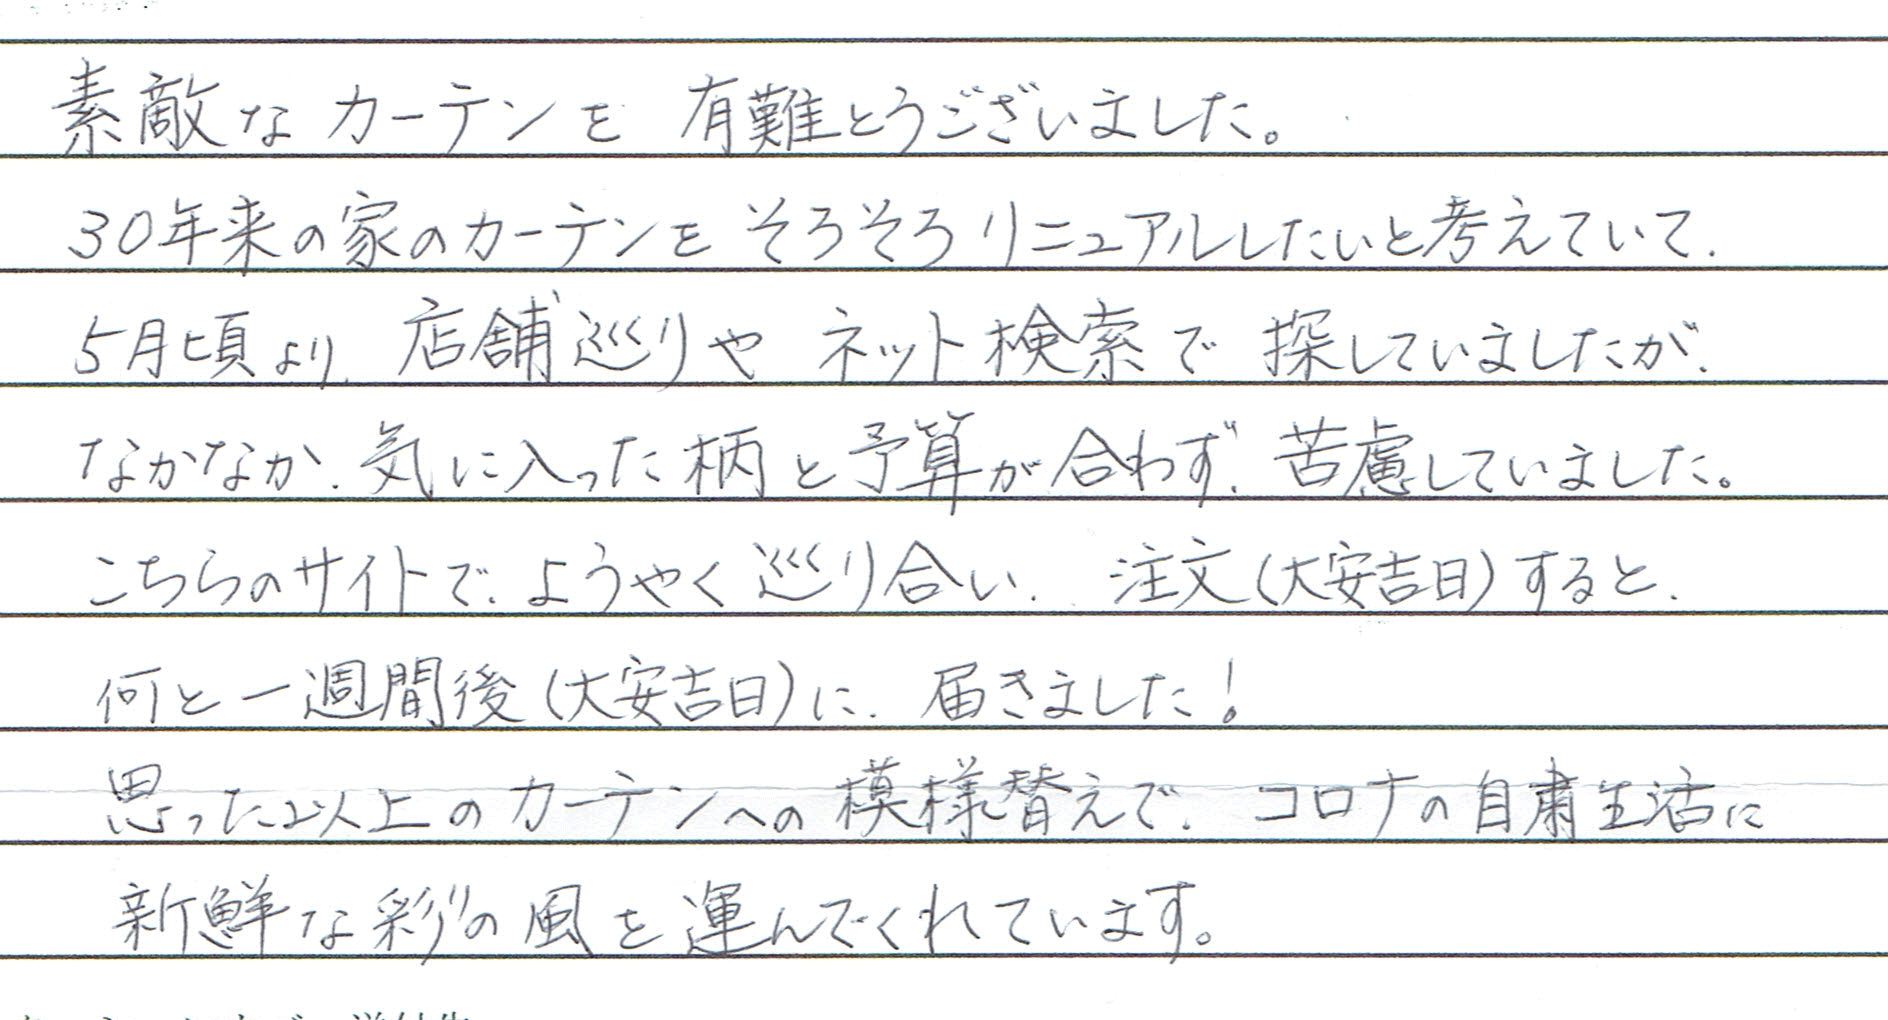 素敵なカーテンを 有難とうございました。
30年来の家のカーテンを そろそろリニュアルしたいと考えていて、
5月頃より、店舗巡りや ネット検索で 探していましたが、
なかなか、気に入った柄と予算が合わず、苦慮していました。
こちらのサイトで、ようやく巡り合い、注文(大安吉日)すると、
何と一週間後(大安吉日)に、届きました!
思った以上のカーテンへの模様替えで、コロナの自粛生活に
新鮮な彩りの風を運んでくれています。